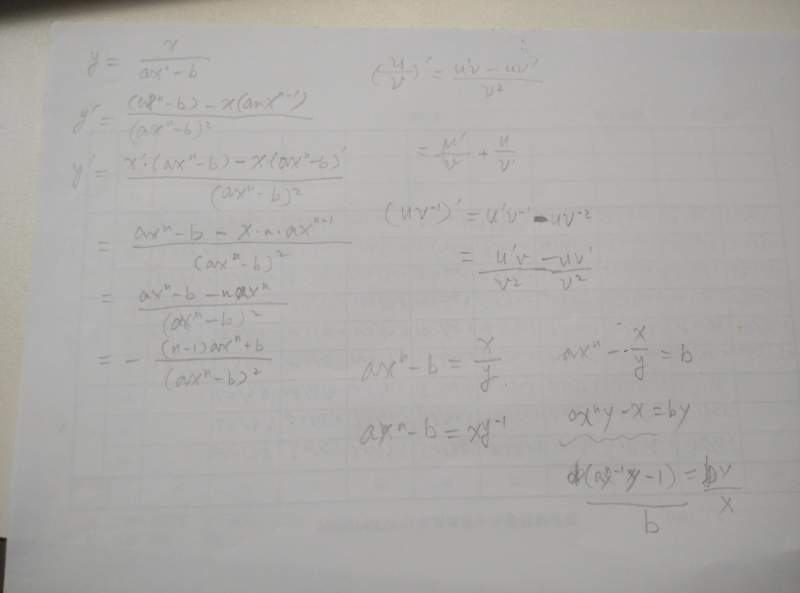 y = x / (axⁿ - b)
y' = ((axⁿ - b) - x(anxⁿ⁻¹)) / (axⁿ - b)²
y' = (x'·(axⁿ - b) - x(axⁿ - b)') / (axⁿ - b)²
= (axⁿ - b - x·n·axⁿ⁻¹) / (axⁿ - b)²
= (axⁿ - b - naxⁿ) / (axⁿ - b)²
= - ((n-1)axⁿ + b) / (axⁿ - b)²
(u/v)' = (u'v - uv') / v²
= u'/v + u/v
(uv⁻¹)' = u'v⁻¹ - uv⁻²
= u'v/v² - uv'/v²
axⁿ - b = x/y
axⁿ - b = xy⁻¹
axⁿ - x/y = b
axⁿy - x = by